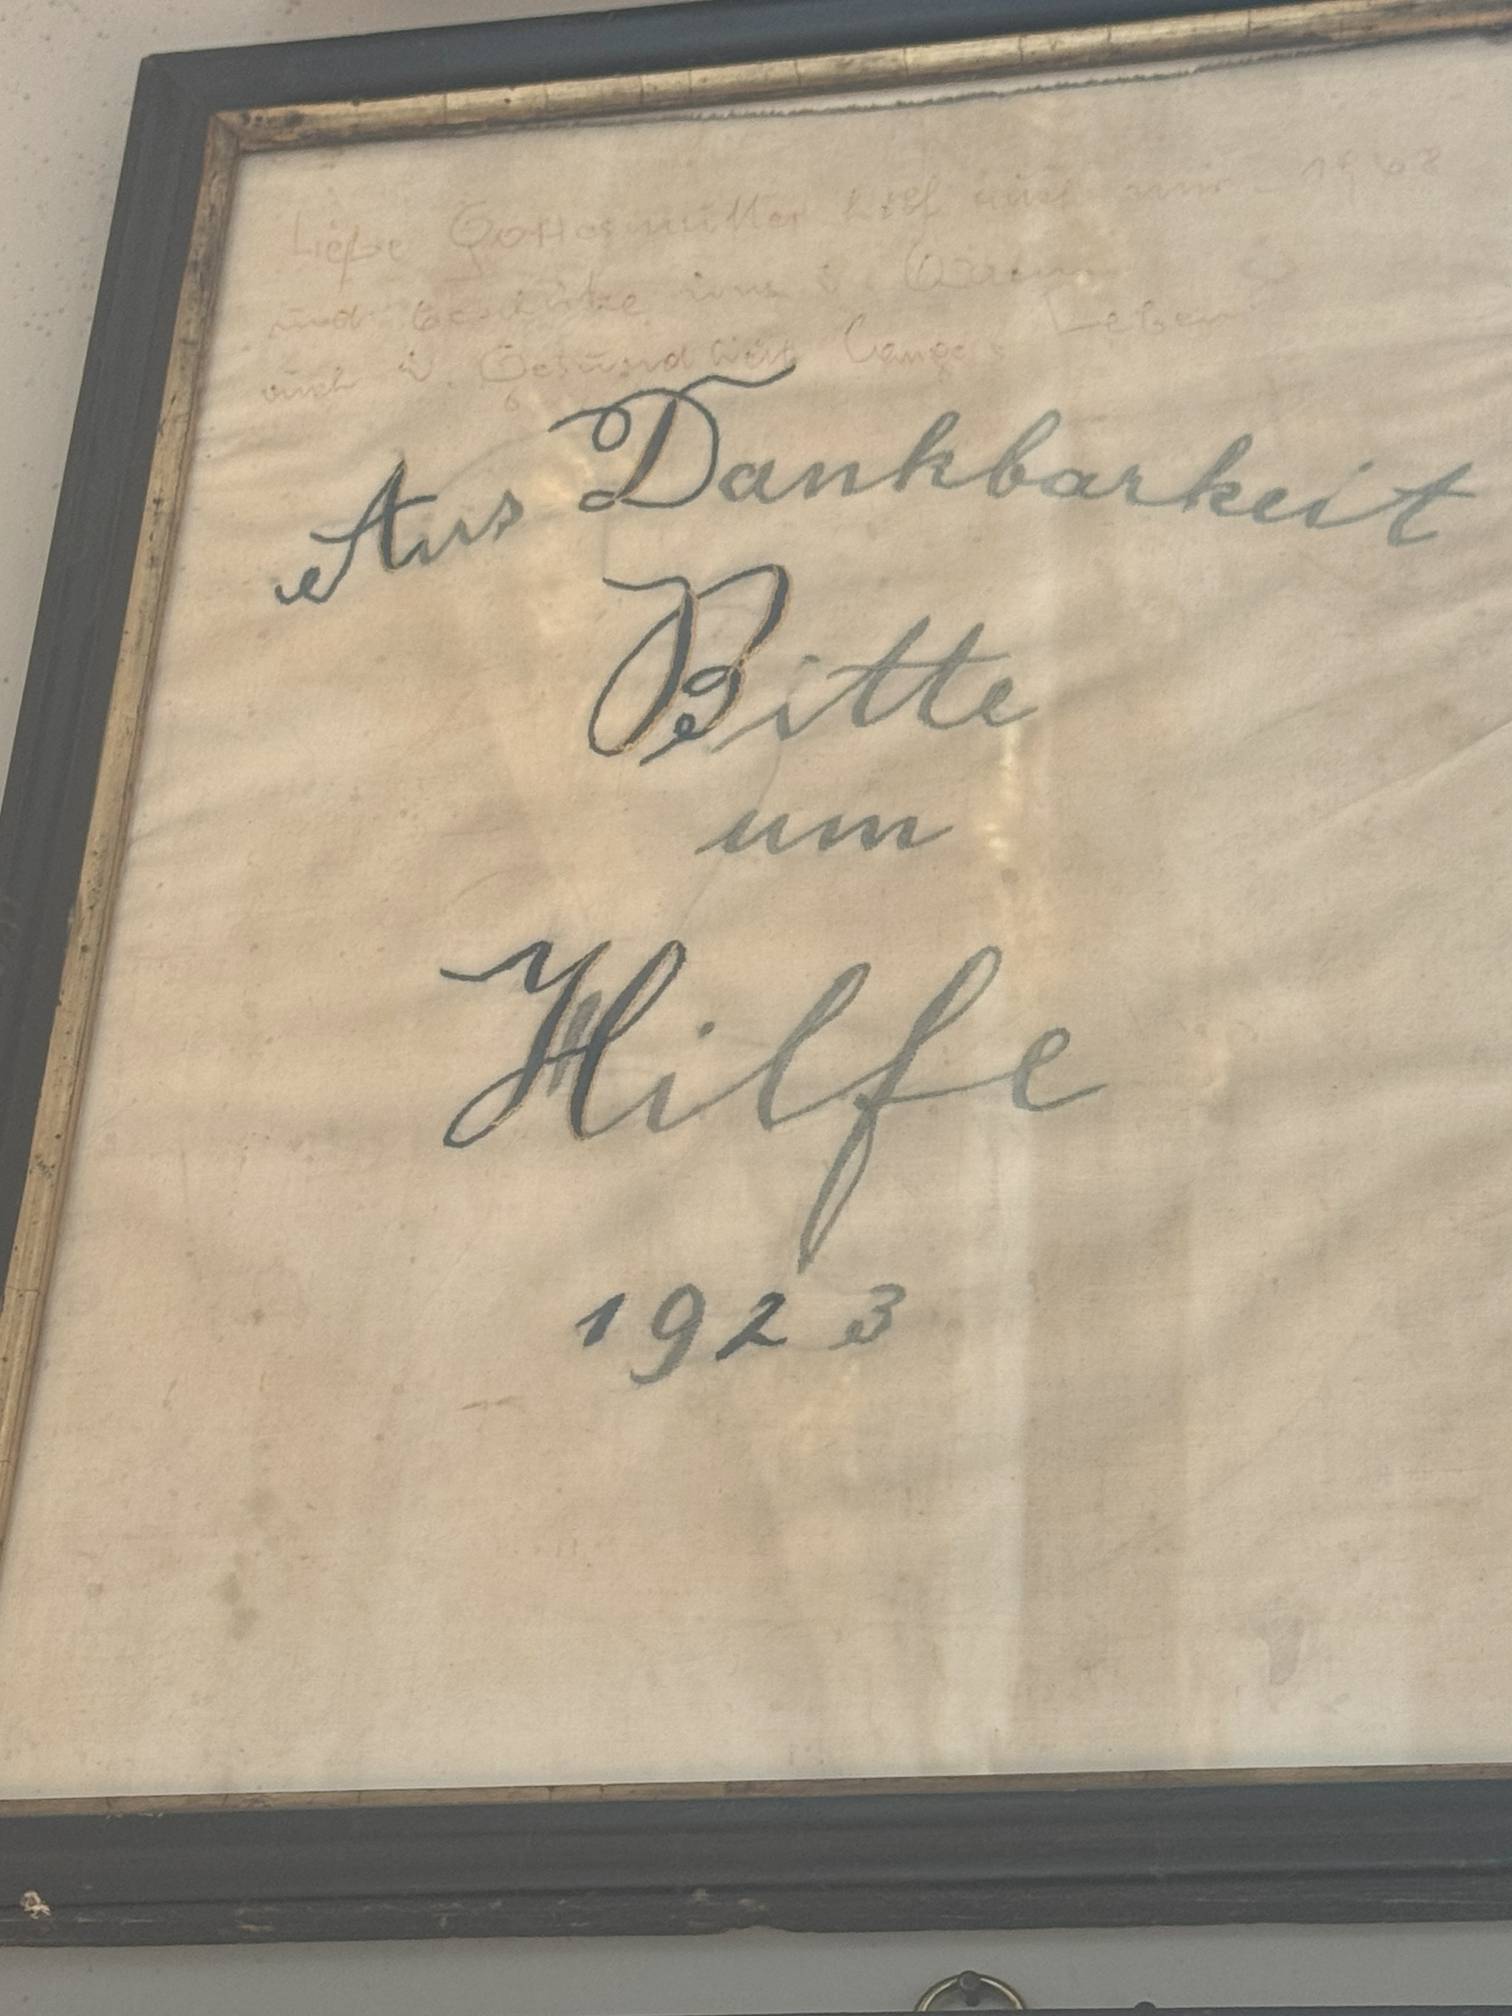 Liebe Gottesmutter hilf auch mir - 1968
und beschütze uns
auch i. Gesundheit langes Leben
Aus Dankbarkeit
Bitte
um
Hilfe
1923